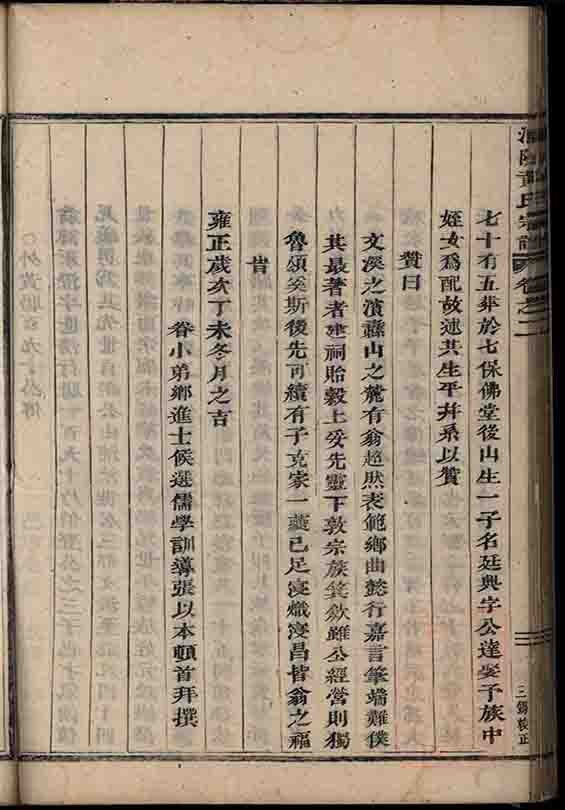 黄氏宗譜
卷之二
三錫校正
七十有五葬於七保佛堂後山生一子名廷興字公達娶予族中
姪女為配故述其生平并系以贊
贊曰
文溪之濱蠶山之麓有翁超然表範鄉曲懿行嘉言筆端難僕
其最著者建祠貽穀上妥先靈下敦宗族簑飲雖公經營則獨
魯頌奚斯後先可續有子克家一䕫已足寖熾寖昌皆翁之福
旹
雍正歲次丁未冬月之吉
眷小弟鄉進士候選儒學訓導張以本頓首拜撰